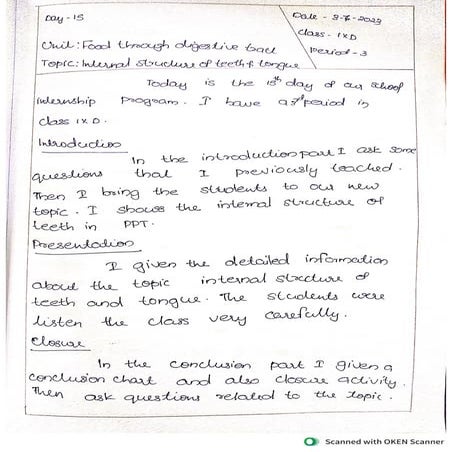 Day - 15
Date - 3-7-2023
Class - IXD
Period - 3
Unit : Food through digestive tract
Topic: Internal structure of teeth & tongue
Today is the 15th day of our school
internship program. I have a 3rd period in
class IX D.
Introduction
In the introduction part I ask some
questions that I previously teached.
Then I bring the students to our new
topic. I shows the internal structure of
teeth in PPT.
Presentation
I given the detailed information
about the topic internal structure of
teeth and tongue. The students were
listen the class very carefully.
Closure
In the conclusion part I given a
conclusion chart and also closure activity.
Then ask questions related to the topic.
Scanned with OKEN Scanner